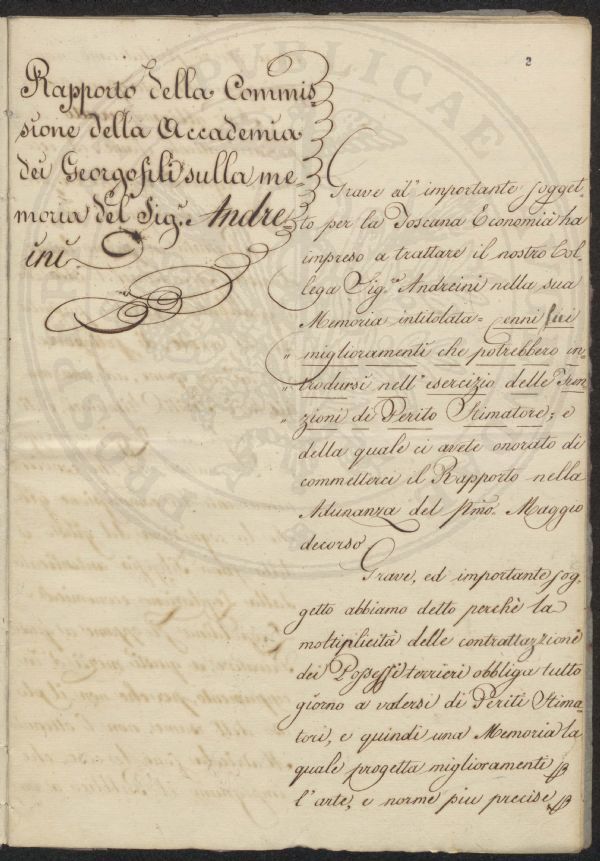 2
Rapporto della Commis-
sione della Accademia
dei Georgofili sulla me-
moria del Sig.e Andre-
ini
Grave ed importante sogget-
to per la Toscana Economia ha
impreso a trattare il nostro Col-
lega Sig.e Andreini nella sua
Memoria intitolata = Cenni sui
" miglioramenti che potrebbero in-
" trodursi nell'esercizio delle Fun-
" zioni di Perito Stimatore; e
della quale ci avete onorato di
commetterci il Rapporto nella
Adunanza del pmo. Maggio
decorso
Grave, ed importante sog-
getto abbiamo detto perchè la
moltiplicità delle contrattazione
dei Possessi terrieri obbliga tutto
giorno a valersi di Periti Stima-
tori, e quindi una Memoria la
quale progetta miglioramenti p
l'arte, e norme piu precise p